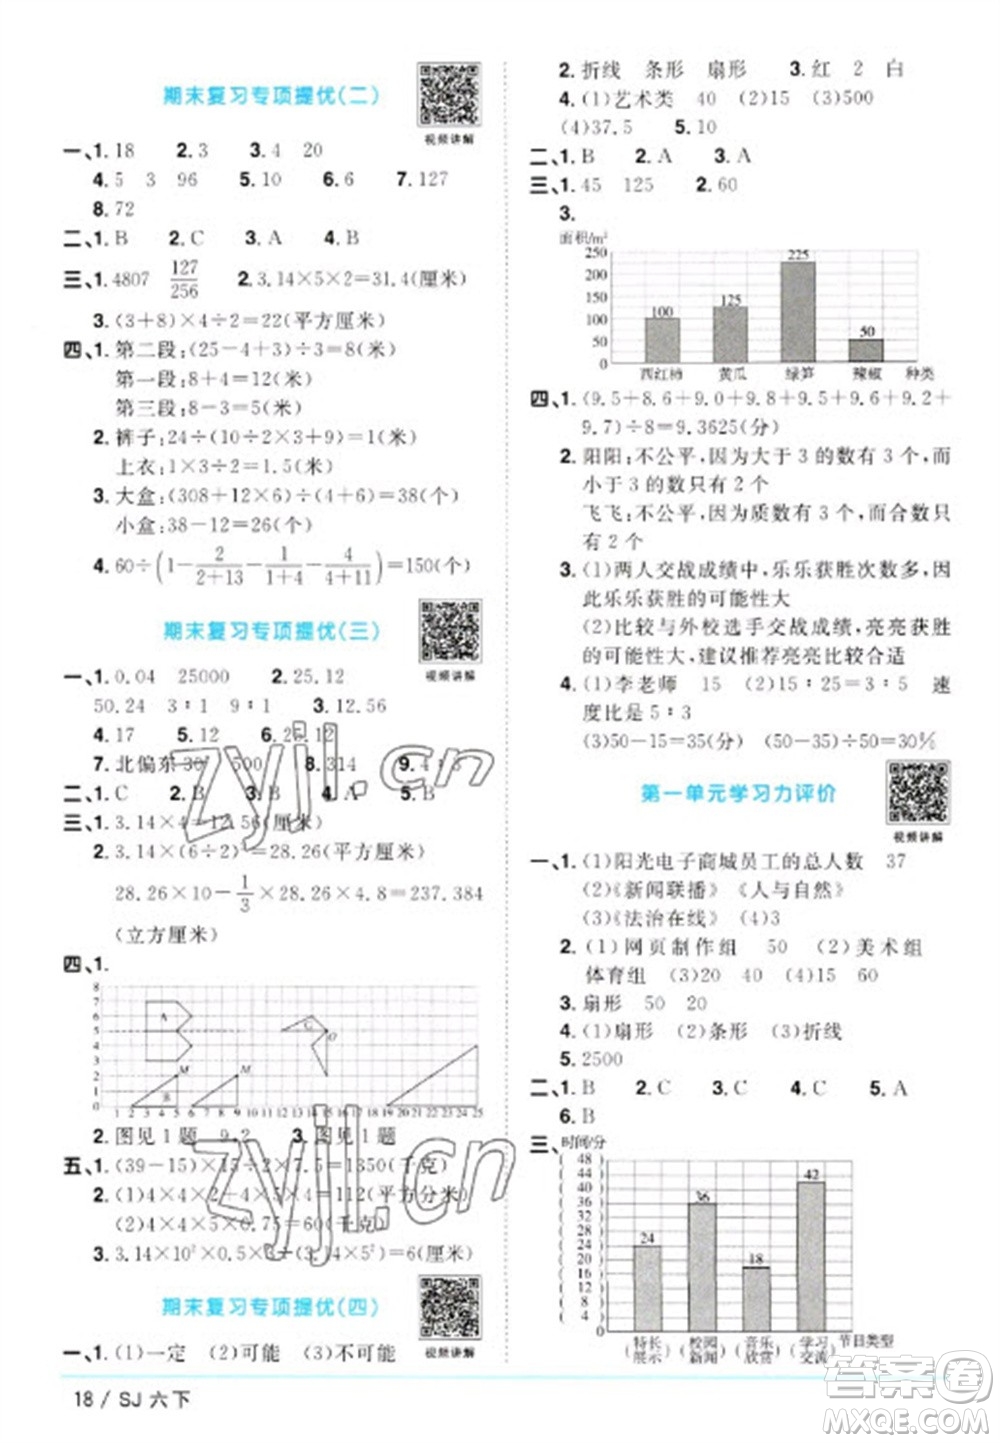 期末复习专项提优(二)
视频讲解
一、1. 18 2. 3 3. 4 20
4. 5 3 96 5. 10 6. 6 7. 127
8. 72
二、1. B 2. C 3. A 4. B
三、1. 4807 127/256 2. 3.14×5×2=31.4(厘米)
3. (3+8)×4÷2=22(平方厘米)
四、1. 第二段:(25-4+3)÷3=8(米)
第一段:8+4=12(米)
第三段:8-3=5(米)
2. 裤子:24÷(10÷2×3+10)=1(米)
上衣:1×3÷2=1.5(米)
3. 大盒:(308+12×6)÷(4+6)=38(个)
小盒:38-12=26(个)
4. 60÷(1-2/(2+13)-1/(1+4)-4/(4+11))=150(元)
期末复习专项提优(三)
视频讲解
一、1. 0.04 25000 2. 25.12
50.24 3∶1 9∶1 3. 12.56
4. 17 5. 12 6. 25.12
7. 北偏东30° 500 8. 314 9. 4∶3
二、1. C 2. A 3. B 4. C 5. B
三、1. 3.14×4=12.56(厘米)
2. 3.14×(6÷2)²=28.26(平方厘米)
28.26×10-1/3×28.26×3.4=237.384
(立方厘米)
四、1.
8
7
6
5
4
3
2
1
0
A
B
C
O
M
M
1 2 3 4 5 6 7 8 9 10 11 12 13 14 15 16 17 18 19 20 21 22 23 24 25
2. 图见1题 9,2 3. 图见1题
五、1. (39-15)×15÷2×7.5=1350(千克)
2. (1)4×4×2+4×5×4=112(平方分米)
(2)4×4×5×0.75=60(千克)
3. 3.14×10²×2÷3÷(3.14×5²)=6(厘米)
期末复习专项提优(四)
视频讲解
一、1. (1)一定 (2)可能 (3)不可能
18 / SJ 六下
2. 折线 条形 扇形 3. 红 2 白
4. (1)艺术类 40 (2)15 (3)500
(4)37.5 5. 10
二、1. B 2. A 3. A
三、1. 45 125 2. 60
3.
面积/m²
250
200
150
100
50
0
100
125
225
50
西红柿 黄瓜 绿笋 辣椒 种类
四、1. (9.5+8.6+9.6+9.2+9.6+9.6+9.2+
9.7)÷8=9.3625(分)
2. 阳阳:不公平,因为大于 3 的数有 3 个,而
小于 3 的数只有 2 个
飞飞:不公平,因为质数有 3 个,而合数只
有 2 个
3. (1)两人交战成绩中,乐乐获胜次数多,因
此乐乐获胜的可能性大
(2)比较与外校选手交战成绩,亮亮获胜
的可能性大,建议推荐亮亮比较合适
4. (1)李老师 15 (2)15∶25=3∶5 速
度比是 5∶3
(3)50-15=35(分) (50-35)÷50=30%
第一单元学习力评价
视频讲解
一、1. (1)阳光电子商城员工的总人数 37
(2)《新闻联播》 《人与自然》
(3)《法治在线》 (4)3
2. (1)网页制作组 50 (2)美术组
体育组 (3)20 40 (4)15 60
3. 扇形 50 20
4. (1)扇形 (2)条形 (3)折线
5. 2500
二、1. B 2. B 3. B 4. C 5. A
6. B
三、
时间/分
48
44
40
36
32
28
24
20
16
12
8
4
0
24
36
18
42
(特长展示) (校园新闻) (音乐欣赏) (学习交流) 节目类型
zyjl.cn
zyjl.cn
答案圈
MXQE.COM